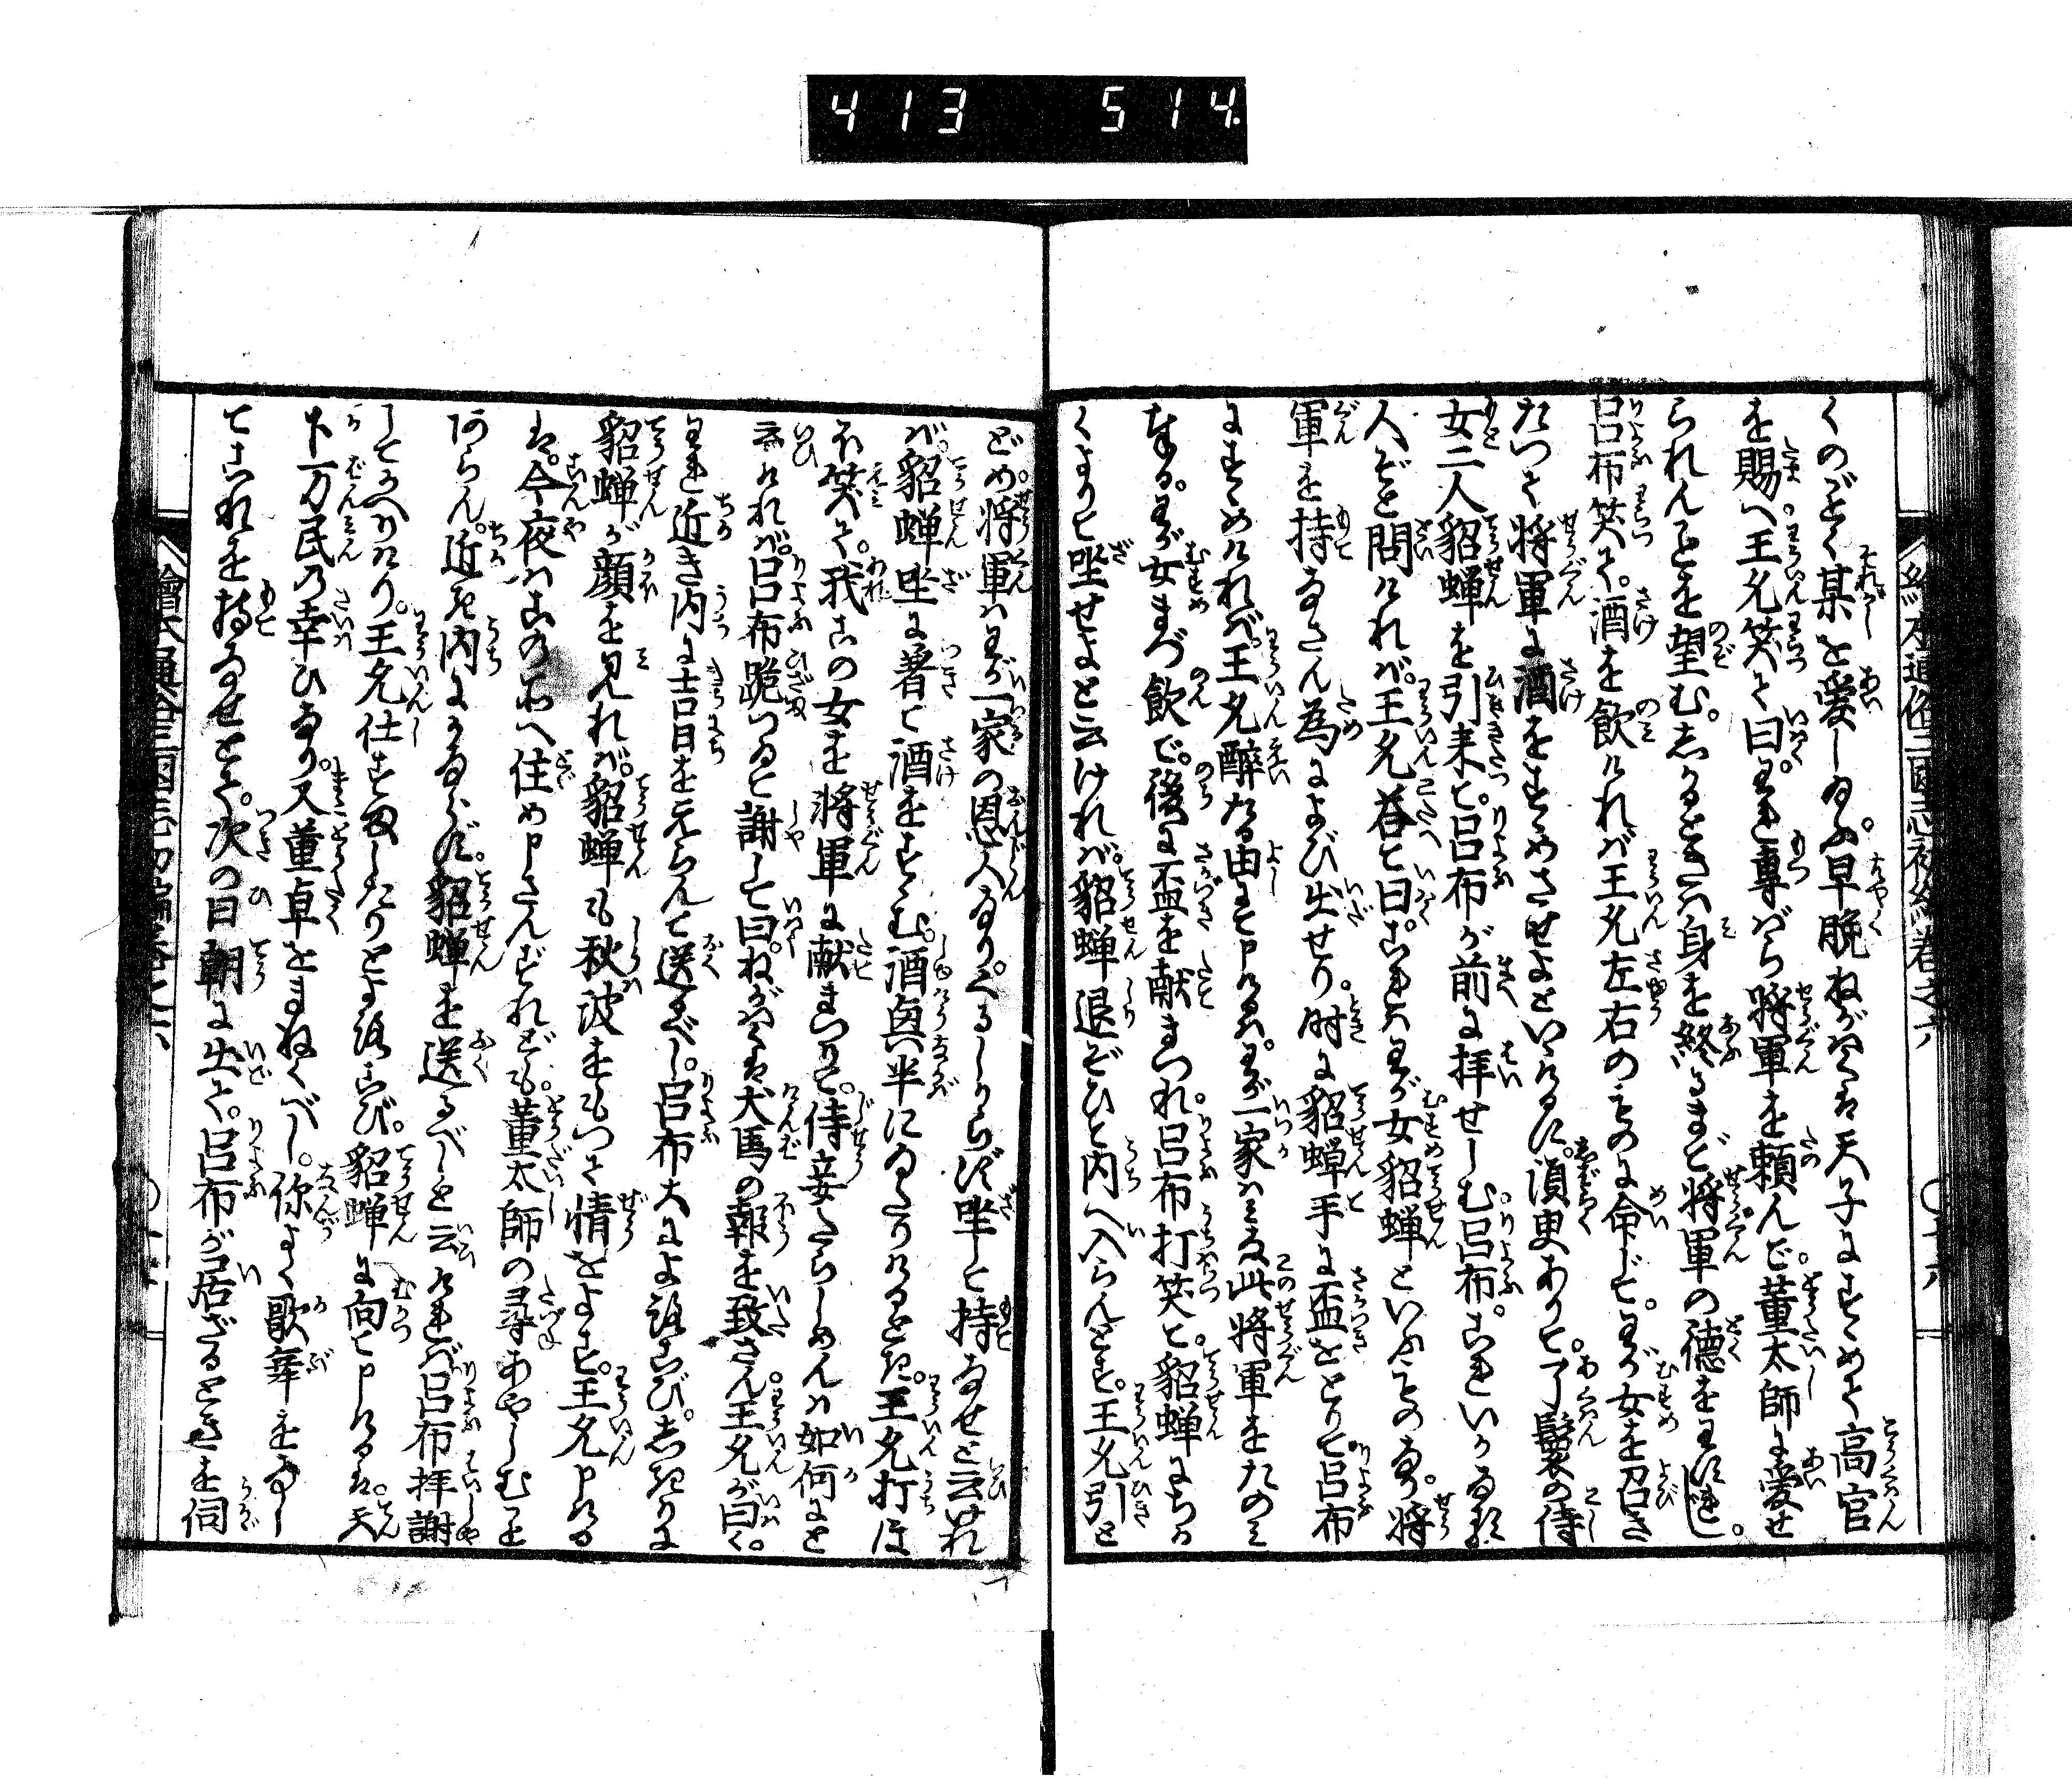 413 514
繪本通俗三國志初編卷之六
くのごとく某を愛し給ふ。早晩ねがはくは天子にすゝめて高官
を賜へ王允笑て曰。われ專ばら將軍を頼んで。董太師に愛せ
られんことを望む。しかるときは身を終るまで將軍の徳をわすれじ。
呂布笑て。酒を飲ければ王允左右のものに命じて。わが女を召さ
たつて將軍に酒をすゝめさせよといひけるに。須臾ありて。丫鬟の侍
女二人貂蝉を引来て。呂布が前に拝せしむ呂布。これいかなる
人ぞと問ければ。王允荅て曰。これはわが女貂蝉といふものなり。將
軍を持なさん為によび出せり。時に貂蝉手に盃をとりて呂布
にすゝめければ。王允醉たる由にて申けるは。わが一家はみな此將軍をたのみ
奉る。わが女まづ飲で。後に盃を献まつれ。呂布打笑て。貂蝉にちか
くよりて坐せよと云ければ。貂蝉退ぞひて内へ入らんとす。王允引とゞ
どめ。將軍はわが一家の恩人なり。くるしからず坐して持なせと云けれ
ば。貂蝉坐に著て酒をすゝむ。酒興半にいたりけるとき。王允打ほ
ほ笑て。我この女を將軍に献まつりて。侍妾たらしめんは如何にと
云ければ。呂布跪づゐて謝して曰。ねがはくは犬馬の報を致さん。王允が曰く。
われ近き内に吉日をえらんで送るべし。呂布大によろこび。しきりに
貂蝉が顔を見れば。貂蝉も秋波をもつて情をよす。王允申ける
は。今夜はこの所へ住め申さんずれども。董太師の尋あやしむこと
あらん。近き内にかならず。貂蝉を送るべしと云ければ呂布拝謝
してかへりけり。王允仕すましたりとよろこび。貂蝉に向て申けるは。天
下万民の幸ひなり。又董卓をまねくべし。你よく歌舞をなし
てこれを持なせとて。次の日朝に出て。呂布が居ざるときを伺
繪本通俗三國志初編卷之六